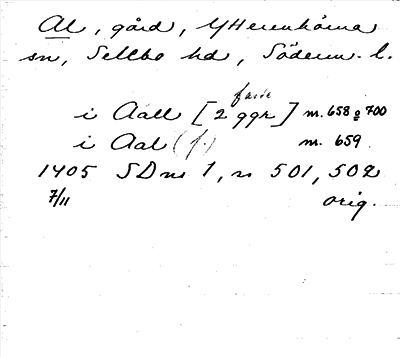 Al, gård, Ytterenhörna
sn, Selebo hd, Söderm. l.
i Aall [2 ggr] m. 658 o 700
i Aal (f.) m. 659
1405 SDns 1, n 501, 502
7/11 orig.